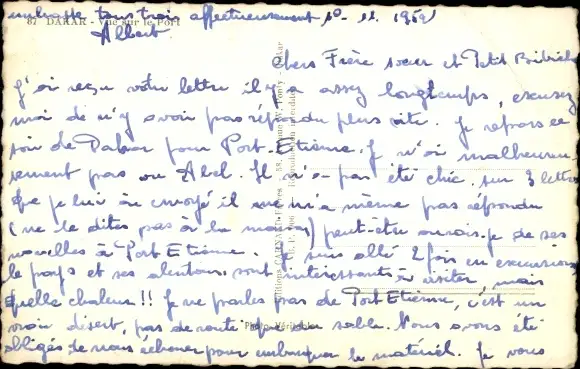 embrasse tous trois affectueusement 10-11-1959
Albert
87 DAKAR - Vue sur le Port
Chers Frère soeur et Petit
J'ai reçu votre lettre il y a assez longtemps, excusez
moi de n'y avoir pas répondu plus vite. Je repars ce
soir de Dakar pour Port-Etienne. J n'ai malheureu
sement pas vu Abel. Il n'a pas été chic. sur 3 lettres
que je lui ai envoyé il ne m'a même pas répondu
(ne le dites pas à la maman) peut-être aurais-je de ses
nouvelles à Port Etienne. Je suis allé 2 fois en excursion
le pays et ses alentours sont intéressants à visiter, mais
quelle chaleur!! Je ne parles pas de Port Etienne, c'est un
vrai désert, pas de route que du sable. Nous avons été
obligés de nous échouer pour embarquer le matériel. Je vous
Photo Véritable